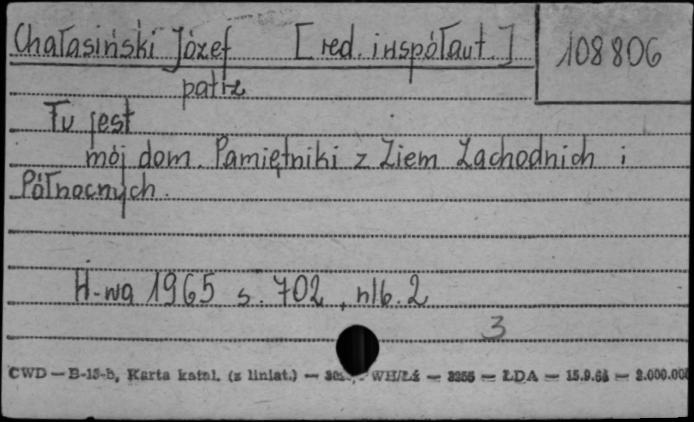 Chałasiński Józef [red. i współaut.]
108806
patrz
Tu jest
mój dom. Pamiętniki z Ziem Zachodnich i
Północnych.
W-wa 1965 s. 702, nlb. 2
3
CWD — B-13-b, Karta katal. (z liniat.) — WH/Łź — 3255 — ŁDA — 15.9.64 — 2.000.000